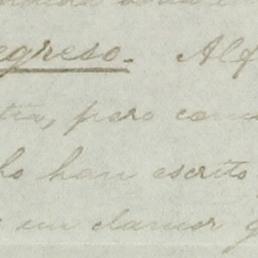 egreso. Alf
tra, pero com
ho han escrito
un clamor g